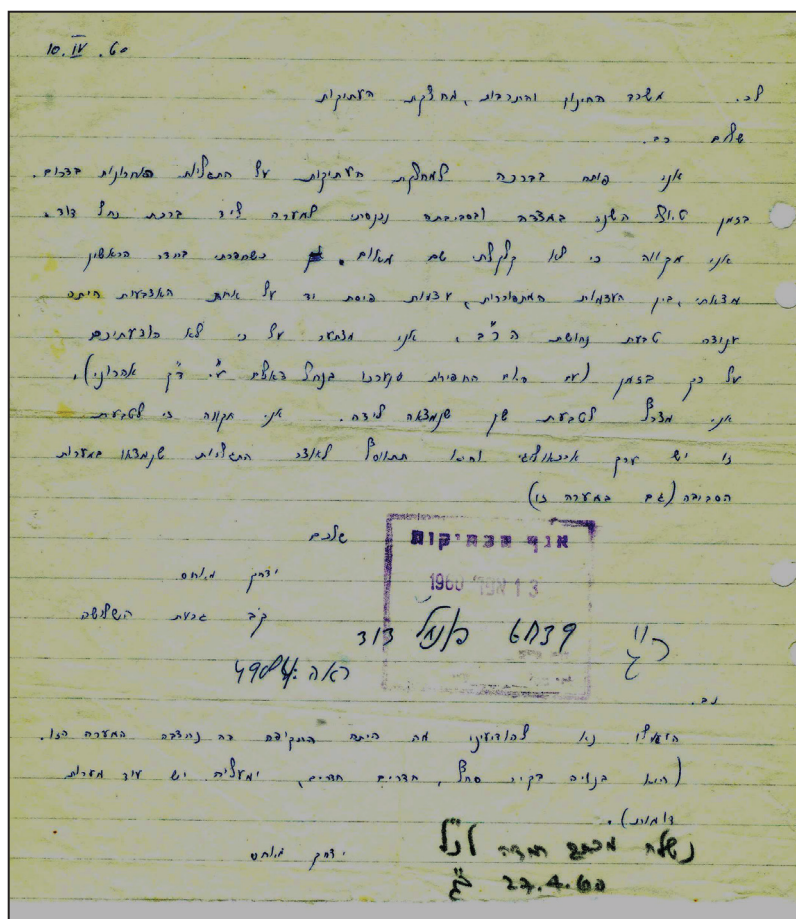 10.IV.60
לכ. משרד החינוך והתרבות, מחלקת העתיקות
שלום רב.
אני פותח בברכה למחלקת העתיקות על התגליות האחרונות בדרום.
בזמן טיולי השנה במצדה ובסביבתה נכנסתי למערה ליד ברכת נחל דוד.
אני מקווה כי לא קלקלתי שם מאום. כשחפרתי בחדר הראשון
מצאתי, בין העצמות המתפוררות, עצמות פיסת יד על אחת האצבעות היתה
ענודה טבעת נחושת הר"ב. אני מצטער על כי לא הודעתיכם
על כך בזמן (עם היום החפירות סערכו בנחל צאלים ע"י ד"ר אהרוני).
אני מצרף לטבעת שן שנמצאה לידה. אני מקווה כי לטבעת
זו יש ערך ארכאולוגי והיא תתווסף לאוצר התגליות שנמצאו במערות
הסביבה (גם במערה זו)
שלכם
אגף העתיקות
יצחק
13 אפר' 1960
קב' גבעת השלושה
בנחל דוד
ראה:
נב.
הואילו נא להודיעני מה היתה התקופה בה נחצבה המערה הזו.
(היא בנויה בקיר סלע, חדרים חדרים, ומעליה יש עוד מערות
דומות).
יצחק
נשלח מכתב תודה לנ"ל
27.4.60